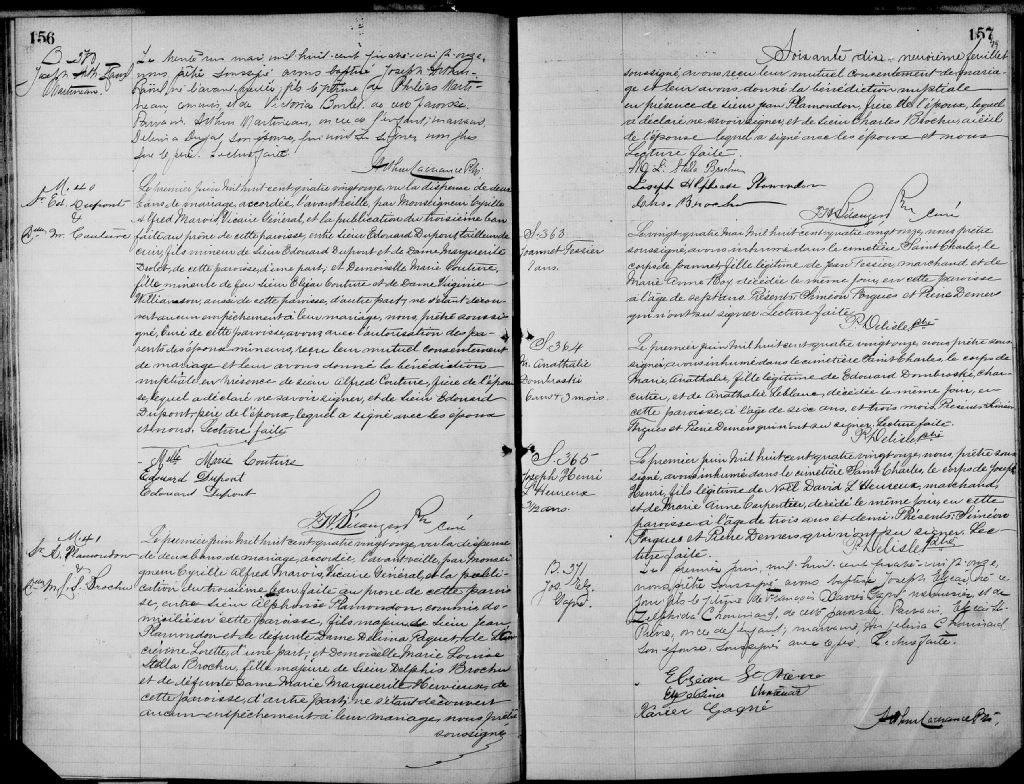 156
B 370
Joseph Arth. Raoul
Martineau.
Le trente un mai, mil huit-cent quatre-vingt-onze,
nous prêtre soussigné avons baptisé Joseph Arthur
Raoul, né l'avant-veille, fils légitime de Philéas Marti-
neau commis, et de Victoria Bordel de cette paroisse.
Parrain Arthur Martineau, oncle de l'enfant; marraine,
Delvina Dugal son épouse, qui n'ont su signer non plus
que le père. Lecture faite
Arthur Lacrance Ptre.
M. 40
Sr Ed. Dupont
&
Dlle M. Couture
Le premier juin mil huit cent quatre vingt onze, vu la dispense de deux
bans de mariage, accordée, l'avant veille, par Monseigneur Cyrille
Alfred Marois, Vicaire Général, et la publication du troisième ban
faite au prône de cette paroisse, entre Sieur Edouard Dupont tailleur de
cuir, fils mineur de Sieur Edouard Dupont et de Dame Marguerite
Drolet, de cette paroisse, d'une part, et Demoiselle Marie Couture,
fille mineure de feu Sieur Elzéar Couture et de Dame Virginie
Williamson, aussi de cette paroisse, d'autre part, ne s'étant décou-
vert aucun empêchement à leur mariage, nous, prêtre soussi-
gné, Curé de cette paroisse, avons, avec l'autorisation des pa-
rents des époux mineurs, reçu leur mutuel consentement
de mariage et leur avons donné la bénédiction
nuptiale en présence de sieur Alfred Couture, frère de l'épou-
se, lequel a déclaré ne savoir signer, et de Sieur Edouard
Dupont, père de l'époux, lequel a signé avec les époux
et nous. Lecture faite
Melle Marie Couture
Edouard Dupont
Edouard Dupont
Ptre Curé
M. 41
Sr A. Plamondon
&
Dlle M. L. S. Brochu
Le premier juin mil huit cent quatre vingt onze, vu la dispense
de deux bans de mariage, accordée, l'avant veille, par Monsei-
gneur Cyrille Alfred Marois, Vicaire Général, et la publi-
cation du troisième ban faite au prone de cette parois-
se, entre Sieur Alphonse Plamondon, commis do-
micilié en cette paroisse, fils majeur de Sieur Jean
Plamondon et de défunte Dame Delima Paquet, de l'An-
cienne Lorette, d'une part, et Demoiselle Marie Louise
Stella Brochu, fille majeure de Sieur Delphis Brochu
et de défunte Dame Marie Marguerite Hervieux, de
cette paroisse, d'autre part, ne s'étant découvert
aucun empêchement à leur mariage, nous, prêtre
soussigné
157
Soixante dix-neuvième feuillet
soussigné, avons reçu leur mutuel consentement de maria-
ge et leur avons donné la bénédiction nuptiale
en présence de Sieur Jean Plamondon, frère de l'époux, lequel
a déclaré ne savoir signer, et de Sieur Charles Brochu, aïeul
de l'épouse lequel a signé avec les époux et nous
Lecture faite.
M. L. Stella Brochu
Joseph Alphonse Plamondon
Ptre Curé
S. 363
Joannet Tessier
7 ans.
Le vingt quatre mai mil huit cent quatre vingt onze, nous prêtre
soussigné, avons inhumé dans le cimetière Saint Charles, le
corps de Joannet, fille légitime de Jean Tessier, marchand et de
Marie Anne Roy, décédée le même jour, en cette paroisse
à l'âge de sept ans. Présents: Siméon Porgues et Pierre Demers
qui n'ont su signer. Lecture faite
P. Delisle, ptre
S. 364
M. Anathalie
Dombroské
6 ans & 3 mois.
Le premier juin mil huit cent quatre vingt onze, nous prêtre sous-
signé, avons inhumé dans le cimetière Saint Charles, le corps de
Marie, Anathalie, fille légitime de Edouard Dombroské, char-
cutier, et de Anathalie Leblanc, décédée le même jour, en
cette paroisse, à l'âge de six ans, et trois mois. Présents Siméon
Porgues et Pierre Demers qui n'ont su signer. Lecture faite.
P. Delisle ptre
S. 365
Joseph Henri
L'Heureux
3 1/2 ans.
Le premier juin mil huit cent quatre vingt onze, nous, prêtre sous-
signé, avons inhumé dans le cimetière Saint Charles le corps de Joseph
Henri, fils légitime de Noël David L'Heureux, marchand,
et de Marie Anne Carpentier, décédé le même jour, en cette
paroisse à l'âge de trois ans et demi. Présents: Siméon
Porgues et Pierre Demers qui n'ont su signer. Lec-
ture faite.
P. Delisle ptre
B. 371
Jos. Elz.
Gagné.
Le premier juin, mil-huit-cent quatre-vingt-onze,
nous prêtre soussigné avons baptisé Joseph, Elzéar, né ce
jour fils légitime de François Xavier Gagné menuisier et de
Zelphida Chouinard, de cette paroisse. Parrain, Elzéar St-
Pierre, oncle de l'enfant; marraine, Chouinard
son épouse, soussignés avec le père. Lecture faite.
Elzéar St Pierre
Chouinard
Xavier Gagné
Arthur Lacrance Ptre.